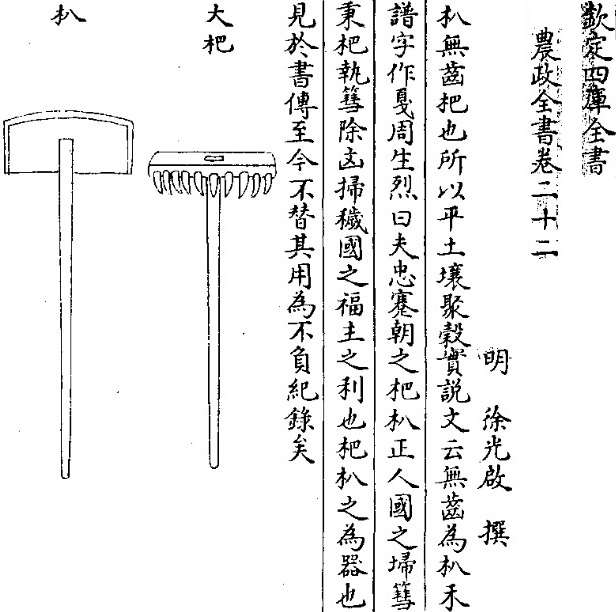 欽定四庫全書
農政全書卷二十二
明 徐光啟 撰
朳無齒杷也所以平土壤聚穀實説文云無齒為朳禾
譜字作戛周生烈曰夫忠蹇朝之杷朳正人國之埽篲
秉杷執篲除凶掃穢國之福主之利也杷朳之為器也
見於書傳至今不替其用為不負紀錄矣
大杷
朳